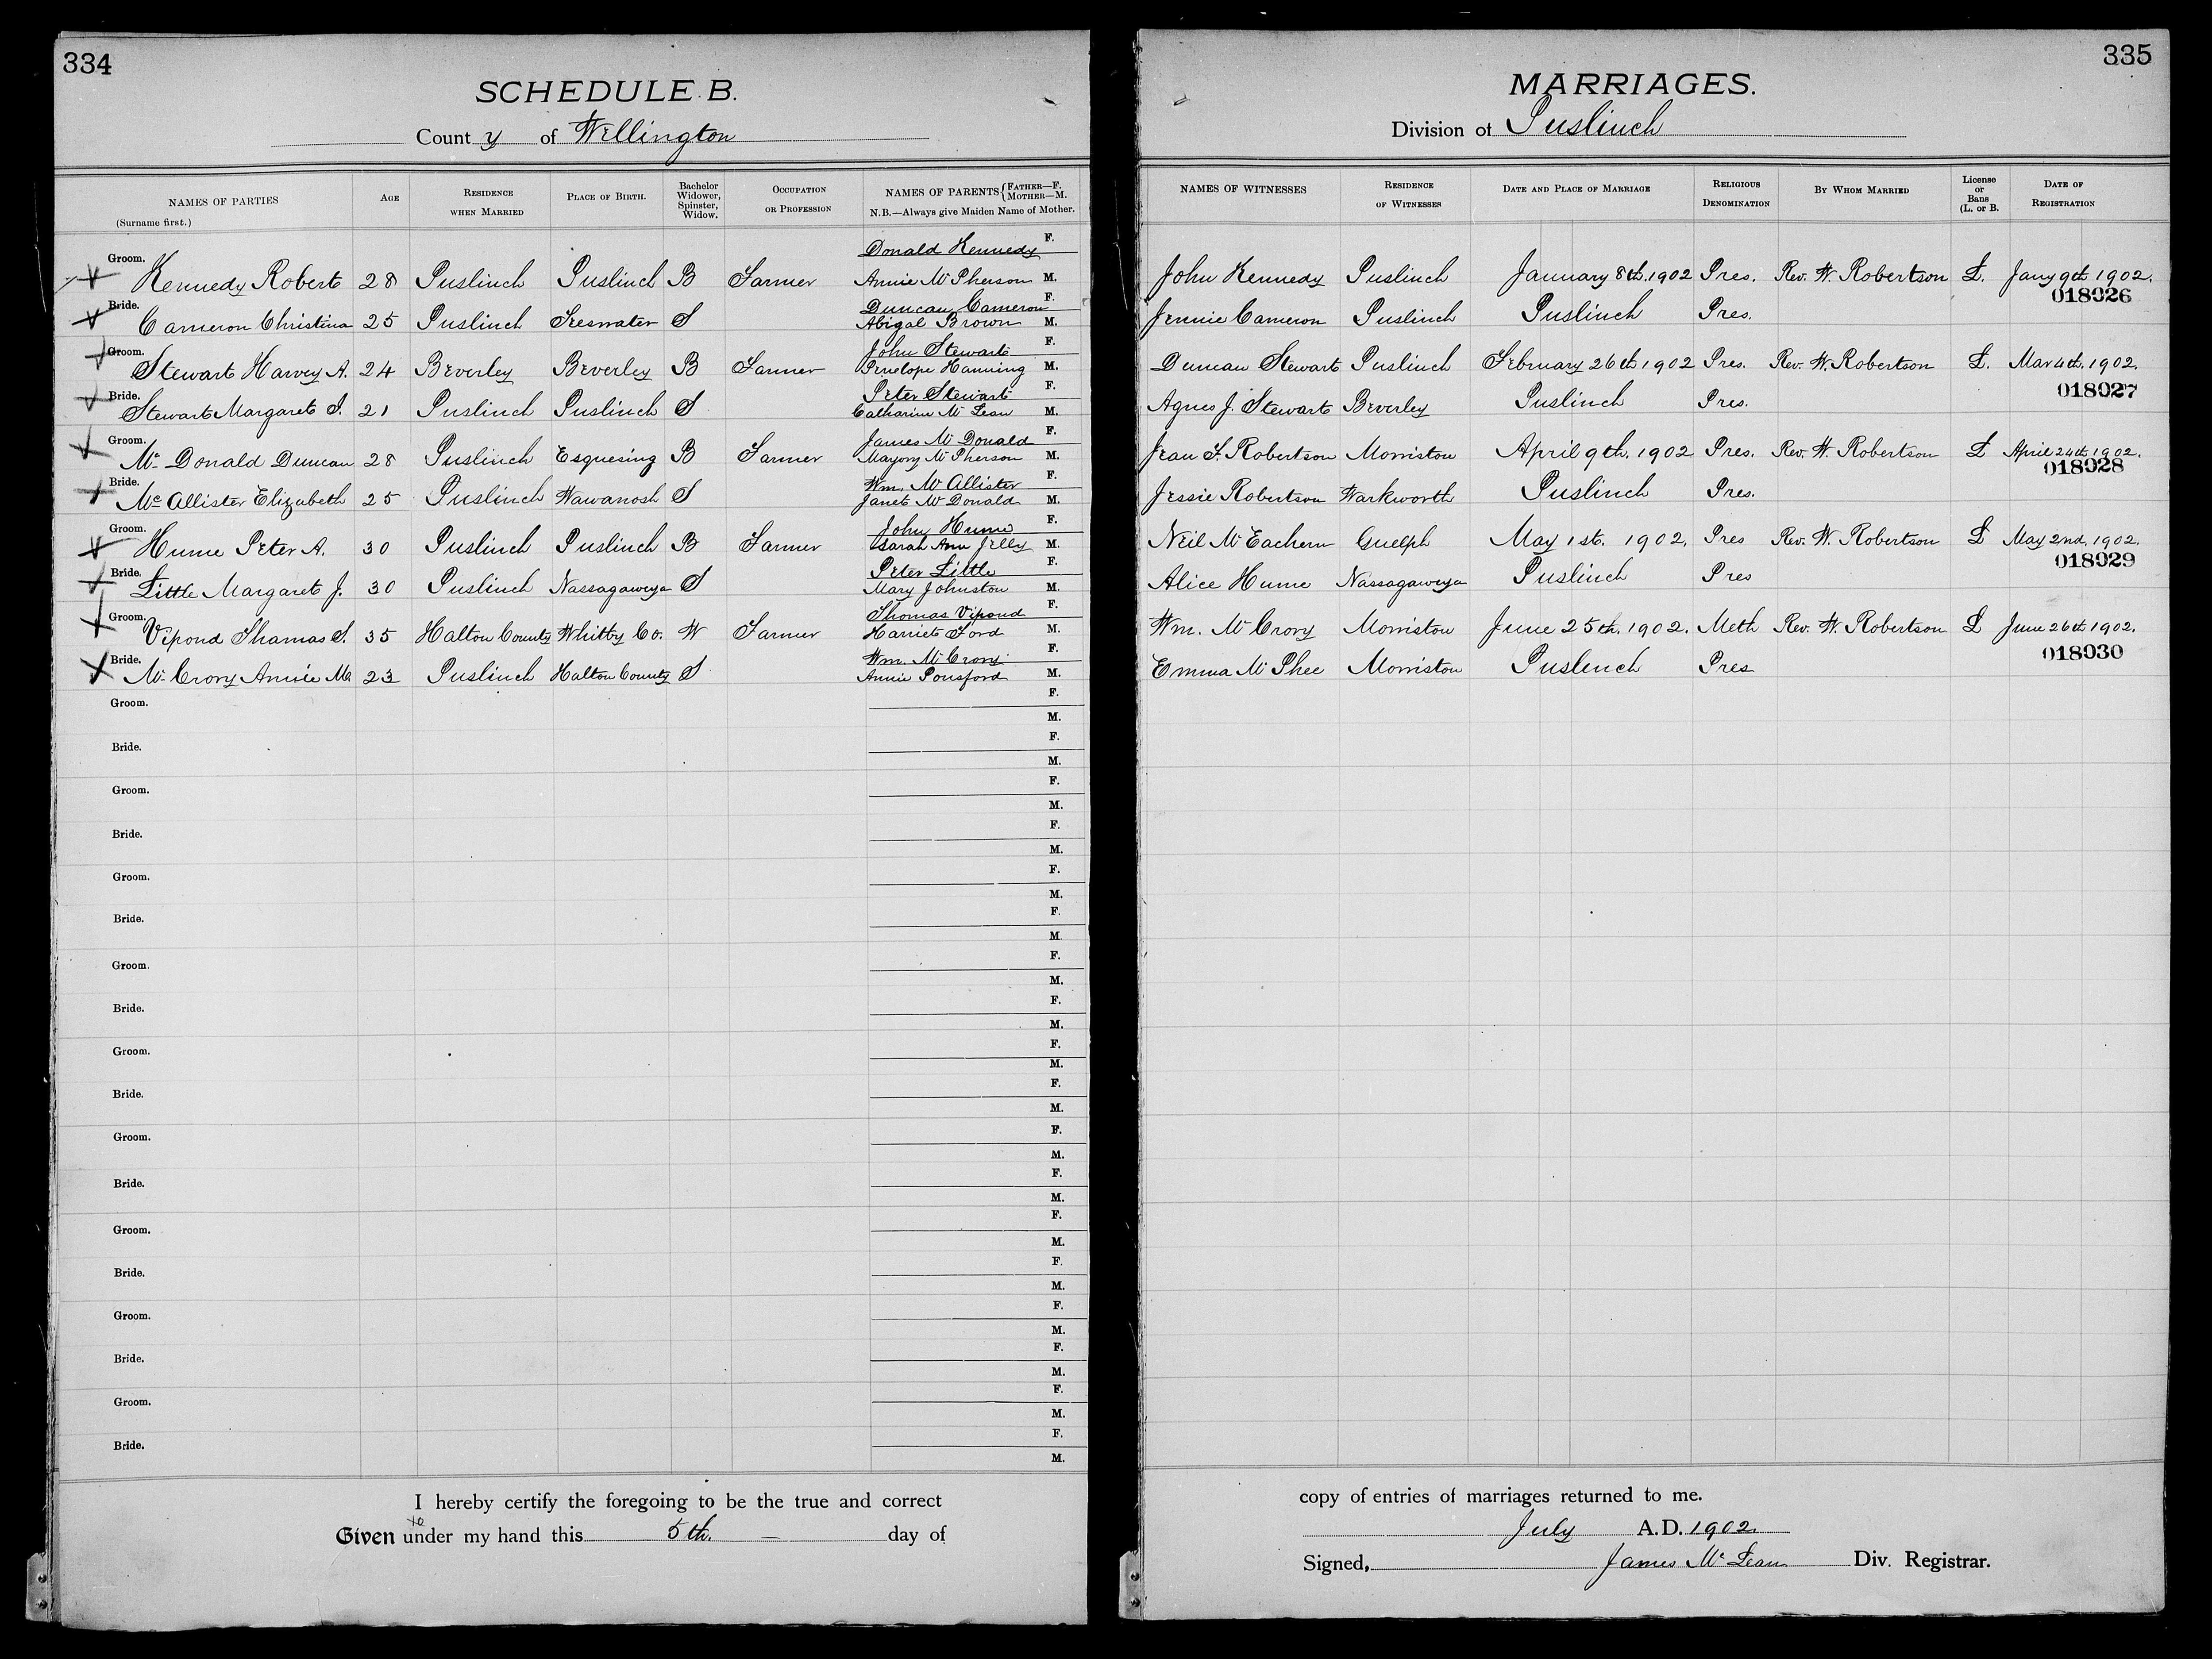 334
SCHEDULE B.
County of Wellington
NAMES OF PARTIES (Surname first.) AGE RESIDENCE WHEN MARRIED PLACE OF BIRTH. Bachelor Widower, Spinster, Widow. OCCUPATION OR PROFESSION NAMES OF PARENTS { FATHER—F. MOTHER—M. N.B.—Always give Maiden Name of Mother.
Donald Kennedy F.
Groom. Kennedy Robert 28 Puslinch Puslinch B Farmer Annie McPherson M.
Duncan Cameron F.
Bride. Cameron Christina 25 Puslinch Teeswater S Abigal Brown M.
John Stewart F.
Groom. Stewart Harvey A. 24 Beverley Beverley B Farmer Penelope Hanning M.
Peter Stewart F.
Bride. Stewart Margaret I. 21 Puslinch Puslinch S Catharine McLean M.
James McDonald F.
Groom. McDonald Duncan 28 Puslinch Esquesing B Farmer Marjory McPherson M.
Wm. McAllister F.
Bride. McAllister Elizabeth 25 Puslinch Wawanosh S Janet McDonald M.
John Hume F.
Groom. Hume Peter A. 30 Puslinch Puslinch B Farmer Sarah Ann Jelly M.
Peter Little F.
Bride. Little Margaret J. 30 Puslinch Nassagaweya S Mary Johnston M.
Thomas Vipond F.
Groom. Vipond Thamas S. 35 Halton County Whitby Co. W Farmer Harriet Ford M.
Wm. McCrory F.
Bride. McCrory Annie M 23 Puslinch Halton County S Annie Ponsford M.
F.
Groom.
M.
F.
Bride.
M.
F.
Groom.
M.
F.
Bride.
M.
F.
Groom.
M.
F.
Bride.
M.
F.
Groom.
M.
F.
Bride.
M.
F.
Groom.
M.
F.
Bride.
M.
F.
Groom.
M.
F.
Bride.
M.
F.
Groom.
M.
F.
Bride.
M.
F.
Groom.
M.
F.
Bride.
M.
F.
Groom.
M.
F.
Bride.
M.
I hereby certify the foregoing to be the true and correct
Given under my hand this 5th. — day of
335
MARRIAGES.
Division of Puslinch
NAMES OF WITNESSES RESIDENCE OF WITNESSES DATE AND PLACE OF MARRIAGE RELIGIOUS DENOMINATION BY WHOM MARRIED License or Bans (L. or B. DATE OF REGISTRATION
John Kennedy Puslinch January 8th. 1902 Pres. Rev. W. Robertson L. Jany 9th 1902.
018026
Jennie Cameron Puslinch Puslinch Pres.
Duncan Stewart Puslinch February 26th 1902 Pres. Rev. W. Robertson L. Mar 4th. 1902.
018027
Agnes J. Stewart Beverley Puslinch Pres.
Jean F. Robertson Morriston April 9th. 1902 Pres. Rev. W. Robertson L April 24th 1902.
018028
Jessie Robertson Warkworth Puslinch Pres.
Neil McEachern Guelph May 1st. 1902. Pres Rev. W. Robertson L May 2nd. 1902.
018029
Alice Hume Nassagaweya Puslinch Pres
Wm. McCrory Morriston June 25th. 1902. Meth Rev. W. Robertson L June 26th 1902.
018030
Emma McPhee Morriston Puslinch Pres
copy of entries of marriages returned to me.
July A.D. 1902.
Signed, James McLean Div. Registrar.